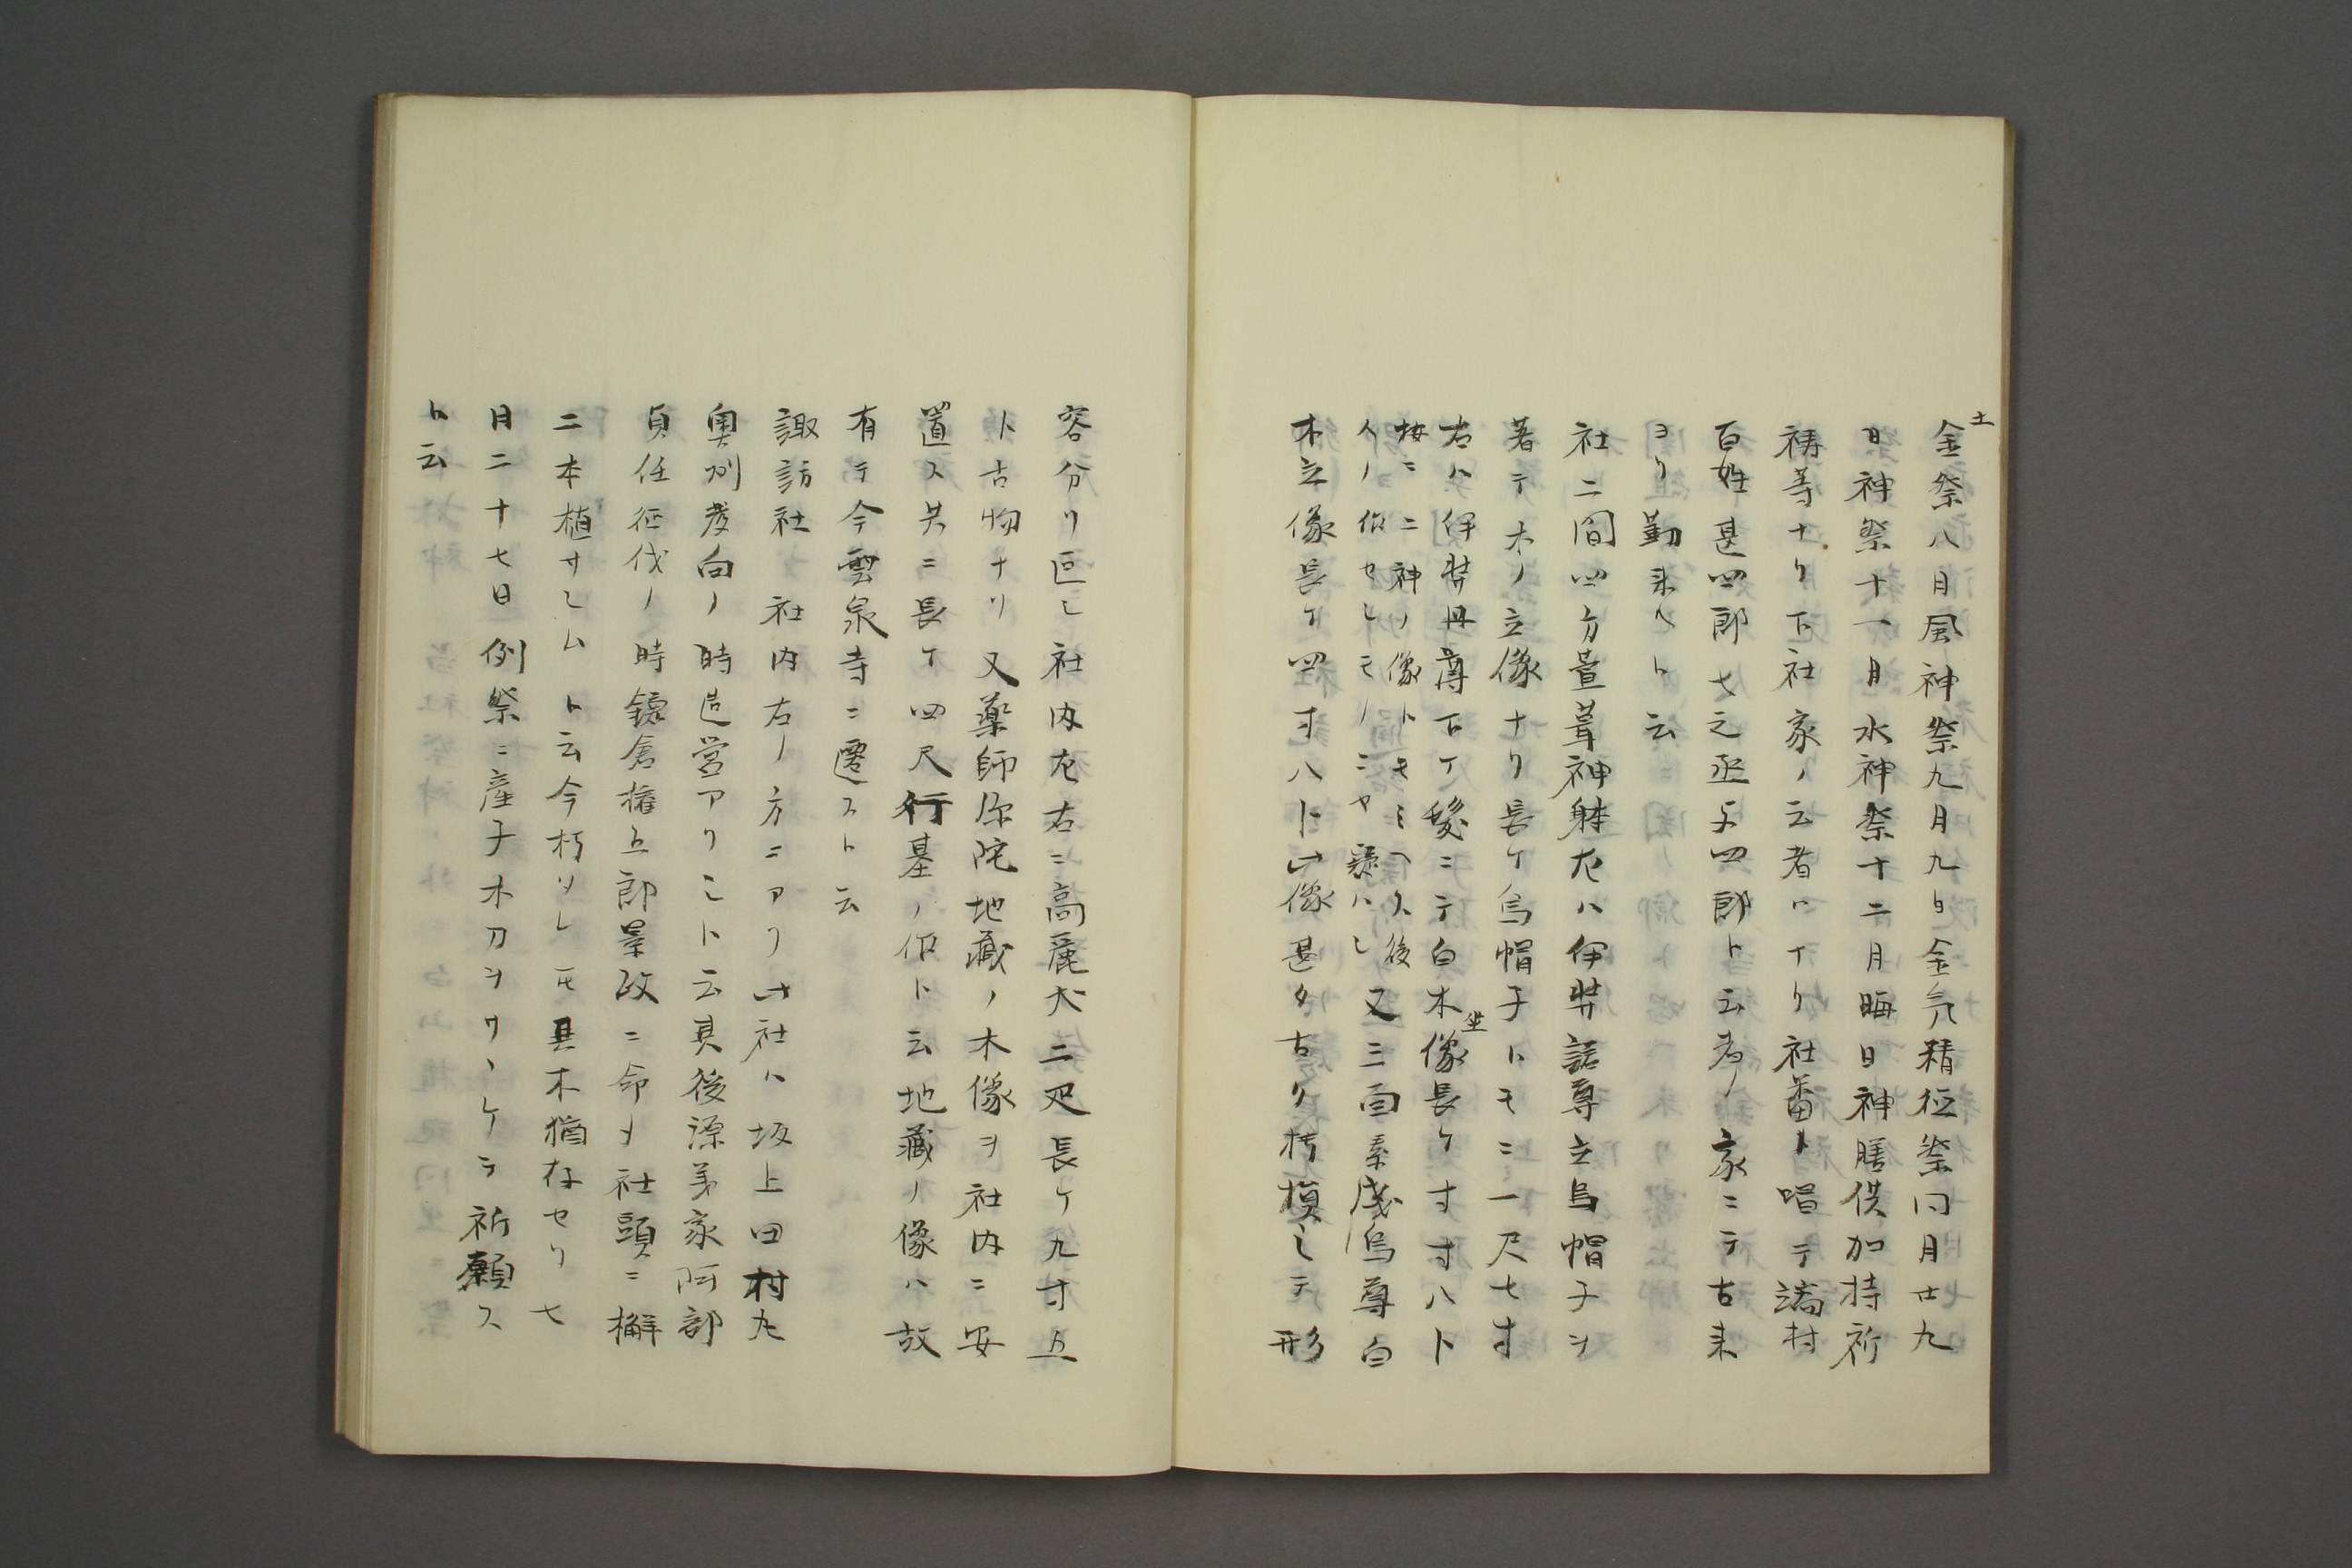 土
金祭八月風神祭九月九日金気精征祭同月廿九
日神祭十一月水神祭十二月晦日神膳供加持祈
祷等ナリ下社家ノ云者ハナク社番ト唱テ端村
百姓甚四郎七之丞与四郎ト云者ノ家ニテ古来
ヨリ勤来ルト云
社二間四方萱葺神躰左ハ伊弉諾尊立烏帽子ヲ
著テ木ノ立像ナリ長ケ烏帽子トモニ一尺七寸
右ハ伊弉冊尊下ケ髪ニテ白木坐像長ケ寸寸八ト
按ニ二神ノ像トモミヘス後
人ノ作セシモノニヤ疑ハシ
又三面素盞烏尊白
木立像長ケ四寸八ト此像甚タ古ク朽損シテ形
容分リ叵シ社内左右ニ高麗犬二疋長ケ九寸五
ト古物ナリ又薬師弥陀地蔵ノ木像ヲ社内ニ安
置ス共ニ長ケ四尺行基ノ作ト云地蔵ノ像ハ故
有テ今雲泉寺ニ遷スト云
諏訪社 社内右ノ方ニアリ此社ハ坂上田村丸
奥州発向ノ時造営アリシト云其後源義家阿部
貞任征伐ノ時鎌倉権五郎景政ニ命メ社頭ニ檞
二本植サシムト云今朽ソレモ其木猶存セリ七
月二十七日例祭ニ産子木刀ヲワヽケラ祈願ス
ト云